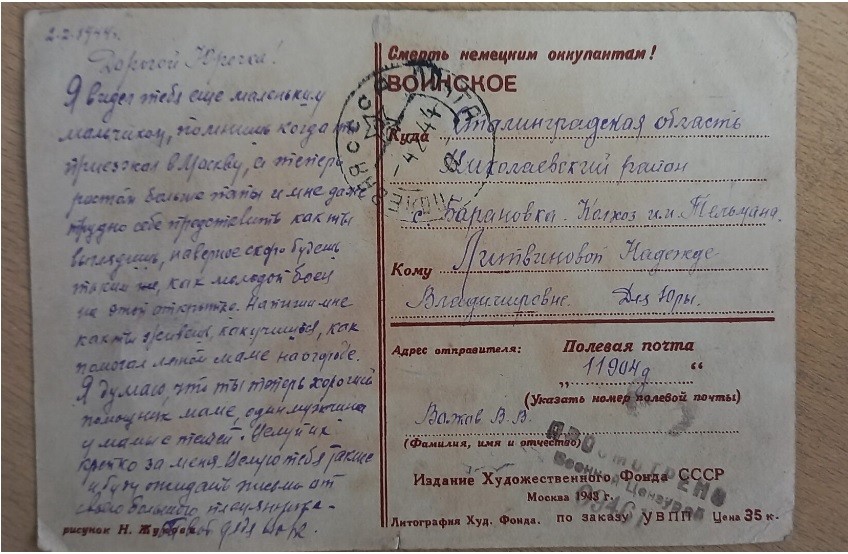 2-2-1944г.
Дорогой Юрочка!
Я видел тебя еще маленьким
мальчиком, помнишь когда ты
приезжал в Москву, а теперь
ростом больше папы и мне даже
трудно себе представить как ты
выглядишь, наверное скоро будешь
таким же, как молодой боец
на этой открытке. Напиши мне
как ты живешь, как учишься, как
помогал летом маме на огороде.
Я думаю, что ты теперь хороший
помощник маме, один мужчина
у мамы с тетей. Целуй их
крепко за меня. Целую тебя также
и буду ожидать письма от
своего большого
Твой дядя
рисунок Н. Жукова
Смерть немецким оккупантам!
ВОИНСКОЕ
Куда Сталинградская область
Николаевский район
с. Барановка. Колхоз им. Тельмана.
Кому Литвиновой Надежде
Владимировне. Для Юры.
Адрес отправителя: Полевая почта
„ 11904д “
(Указать номер полевой почты)
В.В.
(Фамилия, имя и отчество)
ПРОСМОТРЕНО
Военной Цензурой
Издание Художественного Фонда СССР
Москва 1943 г.
Литография Худ. Фонда. по заказу УВПИ Цена 35 к.